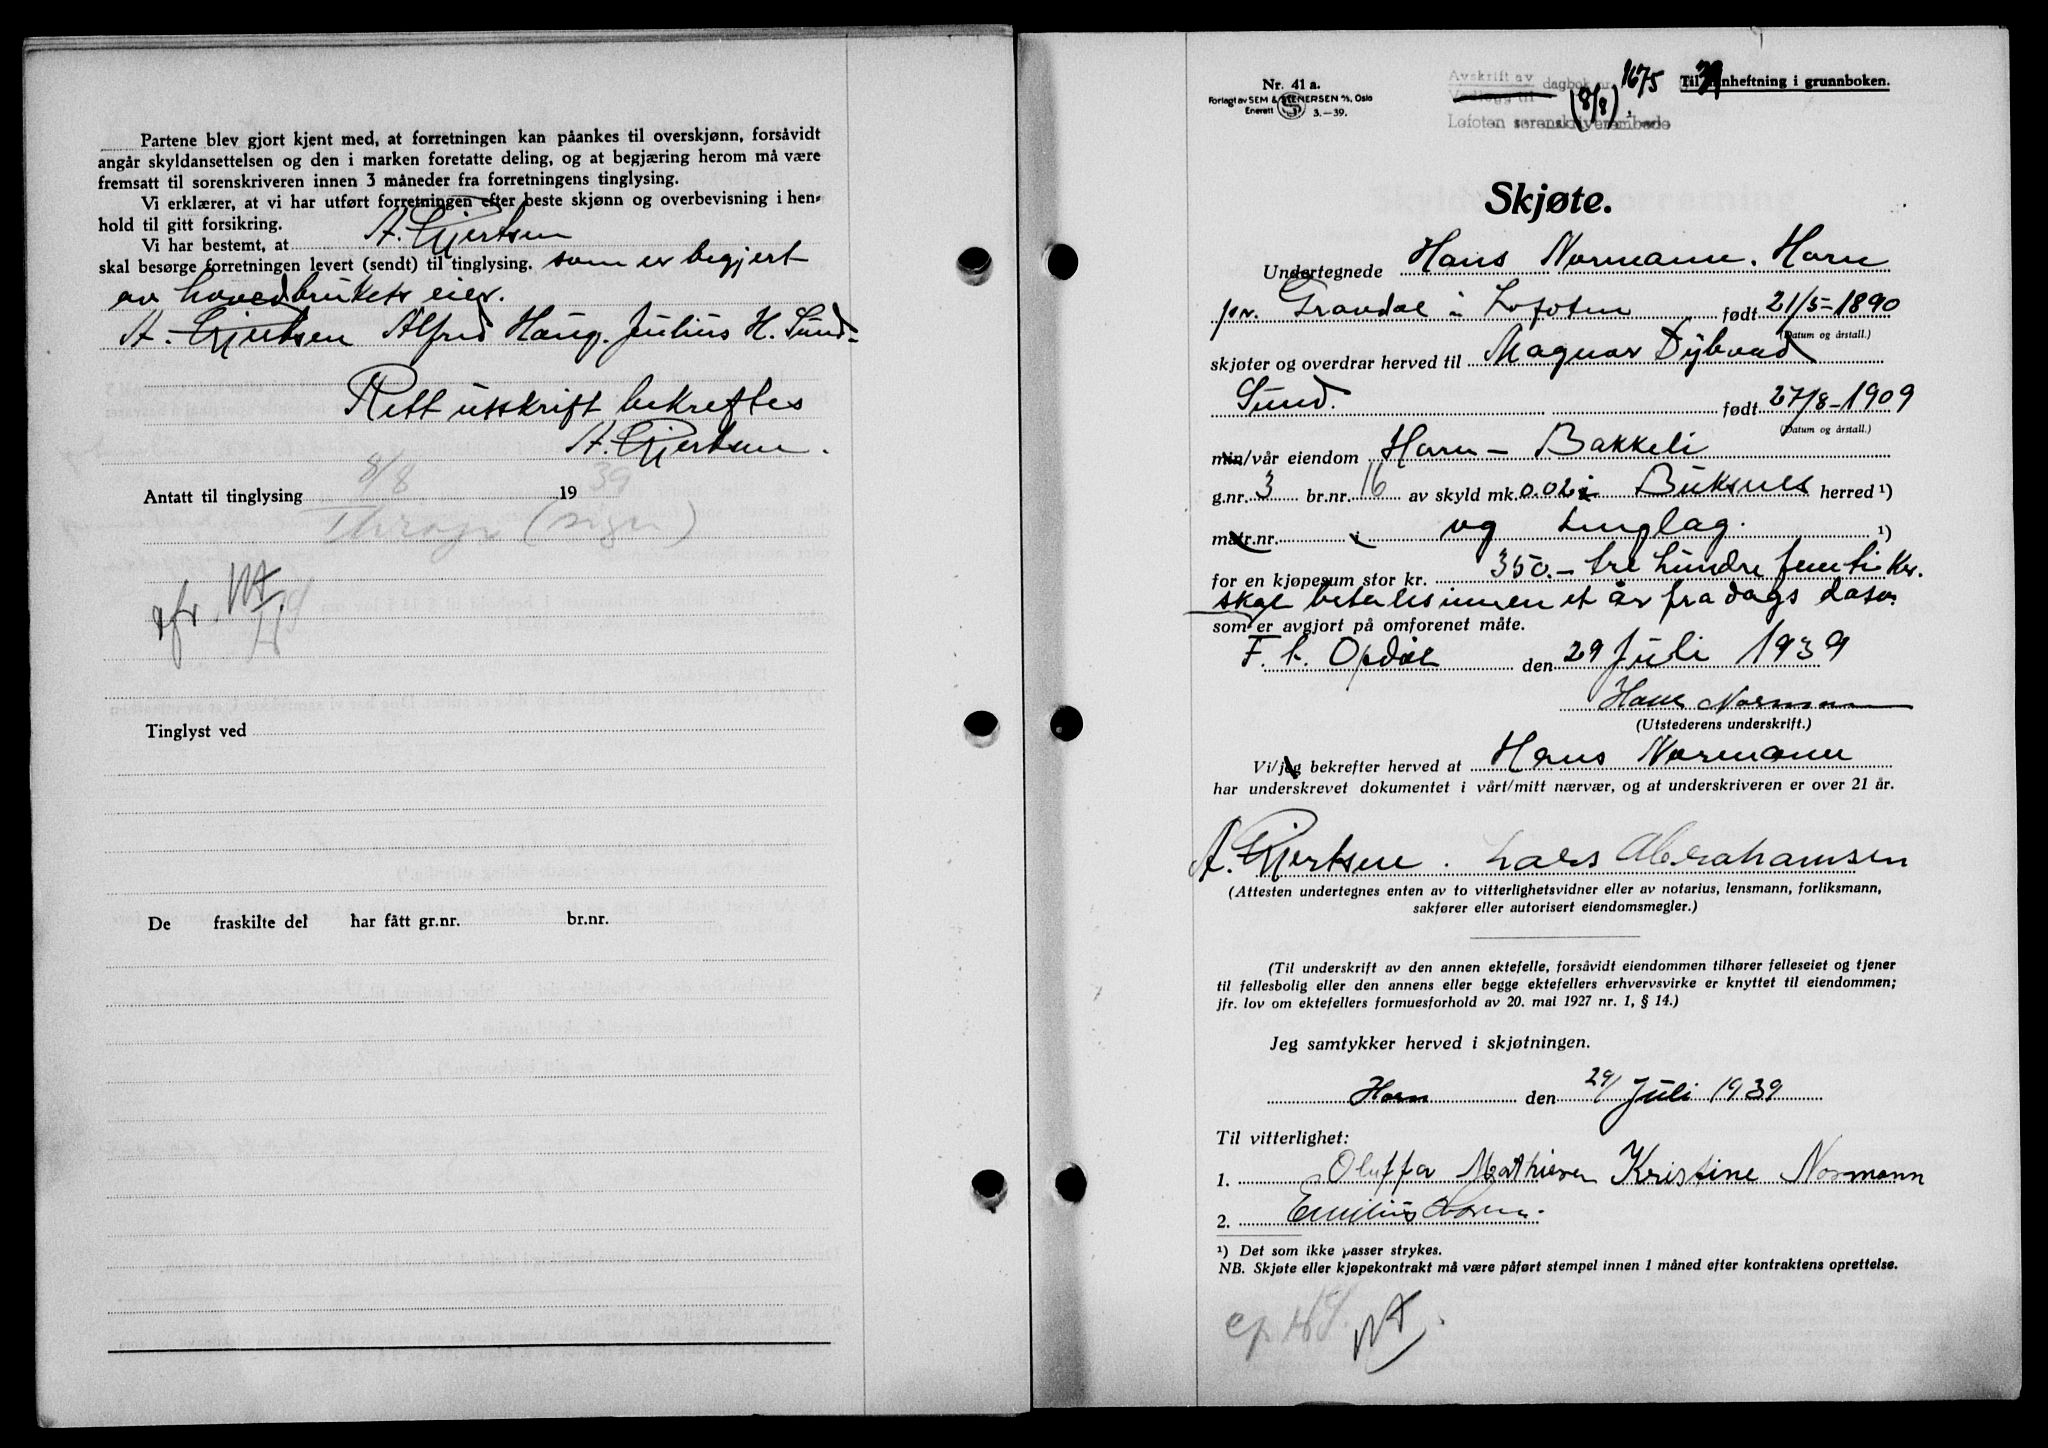 Partene blev gjort kjent med, at forretningen kan påankes til overskjønn, forsåvidt
angår skyldansettelsen og den i marken foretatte deling, og at begjæring herom må være
fremsatt til sorenskriveren innen 3 måneder fra forretningens tinglysing.
Vi erklærer, at vi har utført forretningen efter beste skjønn og overbevisning i hen-
hold til gitt forsikring.
Vi har bestemt, at A. Gjertsen
skal besørge forretningen levert (sendt) til tinglysing. som er begjert
av hovedbrukets eier.
A. Gjertsen Alfred Haug. Julius H. Sund.
Rett utskrift bekreftes
A. Gjertsen.
Antatt til tinglysing 8/8 1939
Thrap (sign)
Tinglyst ved
De fraskilte del har fått gr.nr. br.nr.
Nr. 41 a.
Forlagt av SEM & STENERSEN A/S, Oslo
Enerett 3.—39.
Avskrift av
Vedlegg til dagbok nr. 1675 39
(8/8)
Lofoten sorenskriverembede
Til innheftning i grunnboken.
Skjøte.
Undertegnede Hans Normann. Horn
pr. Gravdal i Lofoten født 21/5-1890
(Datum og årstall.)
skjøter og overdrar herved til Magnar Dybvad
Sund. født 27/8-1909
(Datum og årstall.)
min/vår eiendom Horn - Bakkeli
g.nr. 3 br.nr. 16 av skyld mk. 0.02 i Buksnes herred ¹)
matr.nr. i og tinglag. ¹)
for en kjøpesum stor kr. 350.- tre hundre femti kr.
skal betales innen et år fra dags dato.
som er avgjort på omforenet måte.
F. t. Opdøl den 29 Juli 1939
Hans Normann
(Utstederens underskrift.)
Vi/jeg bekrefter herved at Hans Normann
har underskrevet dokumentet i vårt/mitt nærvær, og at underskriveren er over 21 år.
A. Gjertsen. Lars Abrahamsen
(Attesten undertegnes enten av to vitterlighetsvidner eller av notarius, lensmann, forliksmann,
sakfører eller autorisert eiendomsmegler.)
(Til underskrift av den annen ektefelle, forsåvidt eiendommen tilhører felleseiet og tjener
til fellesbolig eller den annens eller begge ektefellers erhvervsvirke er knyttet til eiendommen;
jfr. lov om ektefellers formuesforhold av 20. mai 1927 nr. 1, § 14.)
Jeg samtykker herved i skjøtningen.
Horn den 29/ Juli 1939
Til vitterlighet:
1. Oluffa Mathisen Kristine Normann
2. Emilius
¹) Det som ikke passer strykes.
NB. Skjøte eller kjøpekontrakt må være påført stempel innen 1 måned efter kontraktens oprettelse.